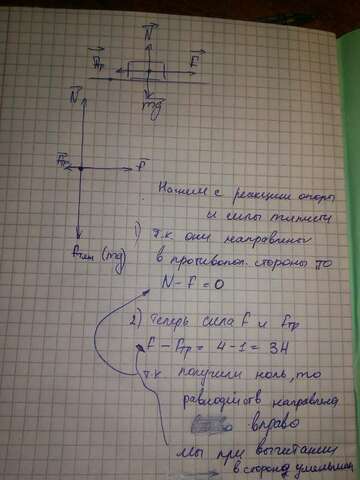 N
Fтр
F
mg
N
Fтр
F
Fтяж (mg)
Начнём с реакции опоры
и силы тяжести
1) т.к они направлены
в противопол. стороны то
N - F = 0
2) Теперь сила F и Fтр
F - Fтр = 4 - 1 = 3Н
т.к. получили ноль, то
равнодейств направлена
вправо
мы при вычитании
в сторону